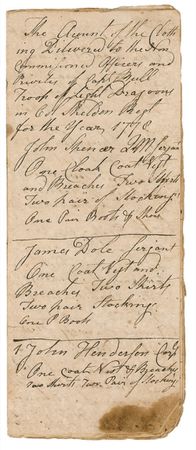 The Account of the Cloth
ing Delivered to the Non
Commissioned Officers and
Privates of Capt Bull
Troop of Light Dragoons
in Col Sheldon Regt
for the Year 1778
John Spencer QM Serjant
One Cloak Coat Vest
and Breaches Two Shirts
Two pair of Stockings
One Pair Boots & Shoes
James Dole Serjant
One Coat Vest and
Breaches Two Shirts
Two pair Stockings
One P Boots
John Henderson Corpl
One coat Vest & Breaches
Two Shirts Two Pair of Stockings